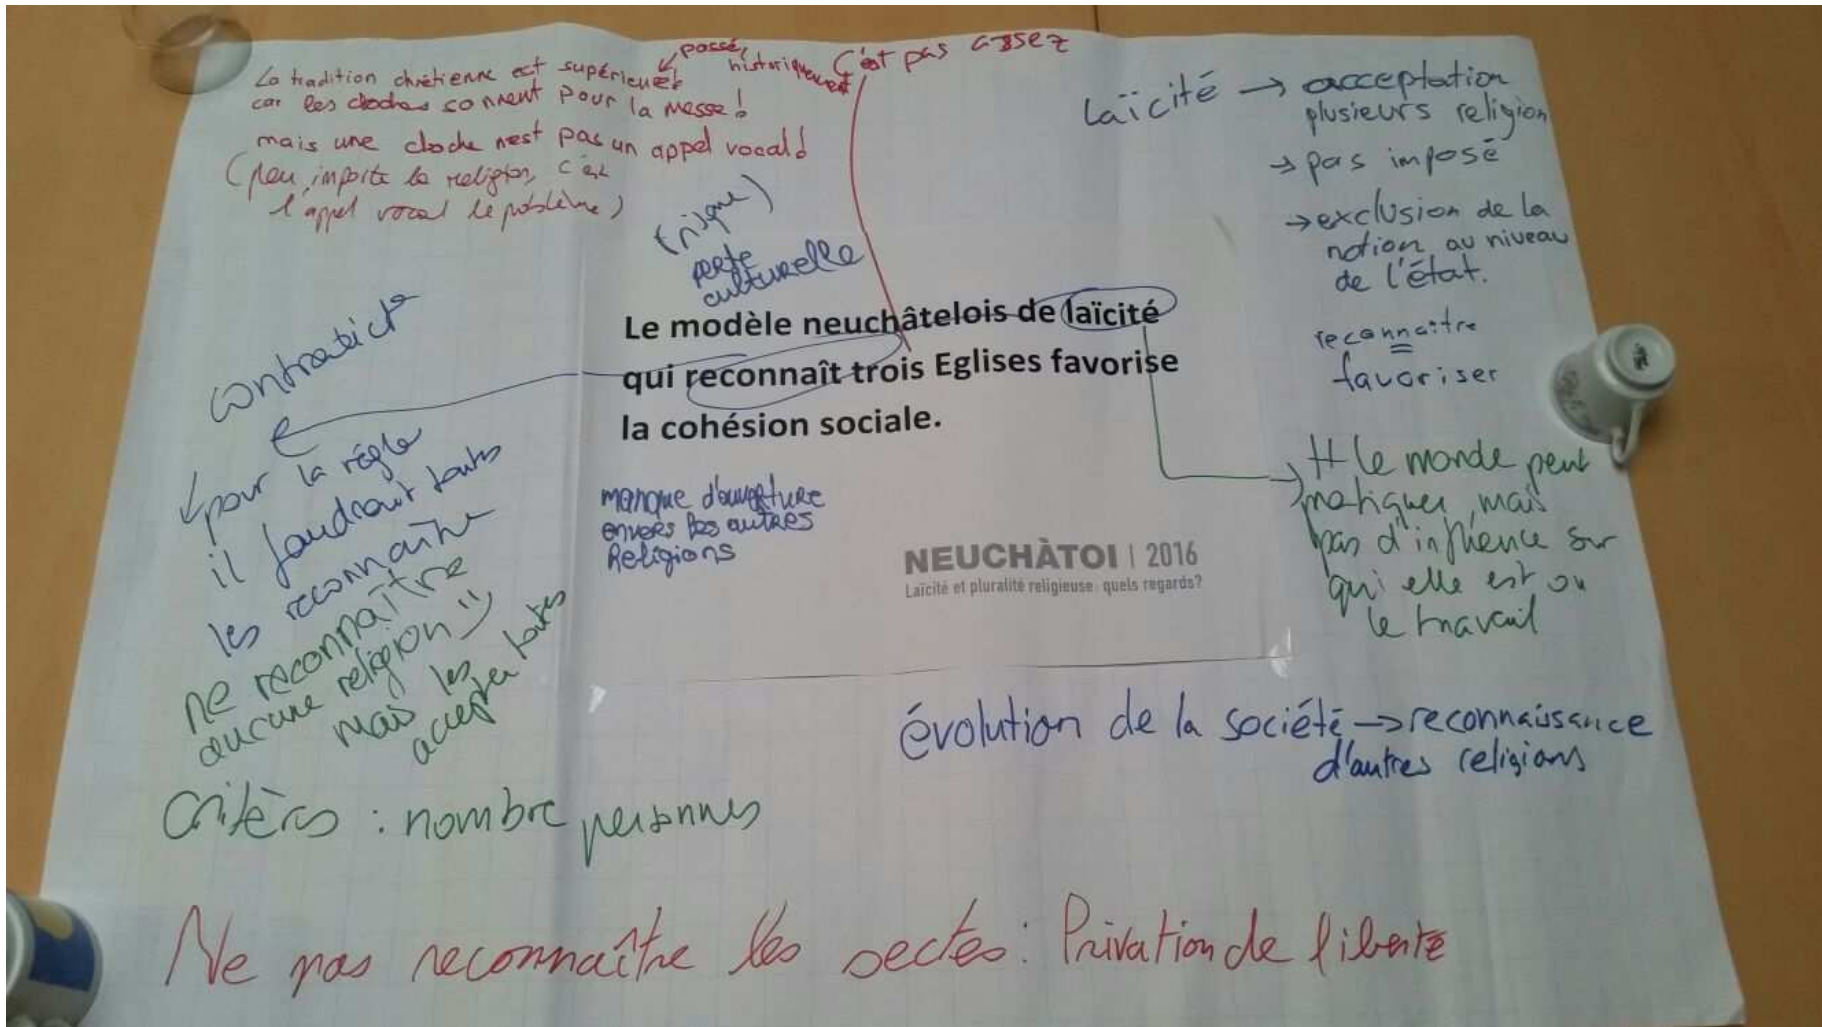 La tradition chrétienne est supérieure!
car les cloches sonnent pour la messe!
mais une cloche n'est pas un appel vocal!
(peu importe la religion, c'est
l'appel vocal le problème)
passé,
historiquement
C'est pas assez
(risque)
perte
culturelle
Laïcité → acceptation
plusieurs religion
→ pas imposé
→ exclusion de la
notion au niveau
de l'état.
reconnaître
=
favoriser
contradict°
Le modèle neuchâtelois de laïcité
qui reconnaît trois Eglises favorise
la cohésion sociale.
pour la règle
il faudrait toutes
les reconnaître
ne reconnaître
aucune religion
mais les
accepter toutes
manque d'ouverture
envers les autres
Religions
NEUCHÀTOI | 2016
Laïcité et pluralité religieuse: quels regards?
le monde peut
pratiquer, mais
pas d'influence sur
qui elle est ou
le travail
évolution de la société → reconnaissance
d'autres religions
Critères : nombre personnes
Ne pas reconnaître les sectes : Privation de liberté